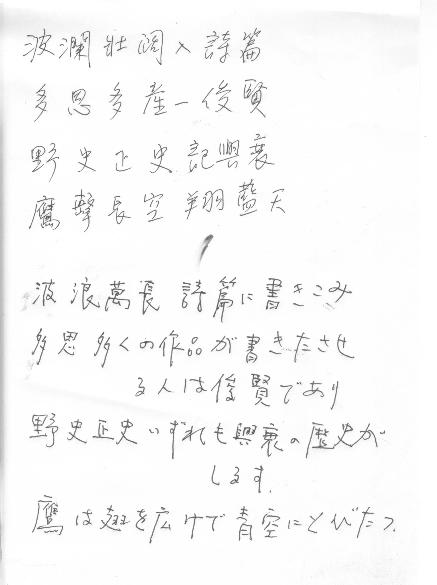 波瀾壮闊入詩篇
多思多産一俊賢
野史正史記興衰
鷹撃長空翔藍天
波浪萬長 詩篇に書きこみ
多思 多くの作品が書きたさせ
る人は俊賢であり
野史正史いずれも興衰の歴史が
しるす.
鷹は翅を広げて青空にとびたつ.